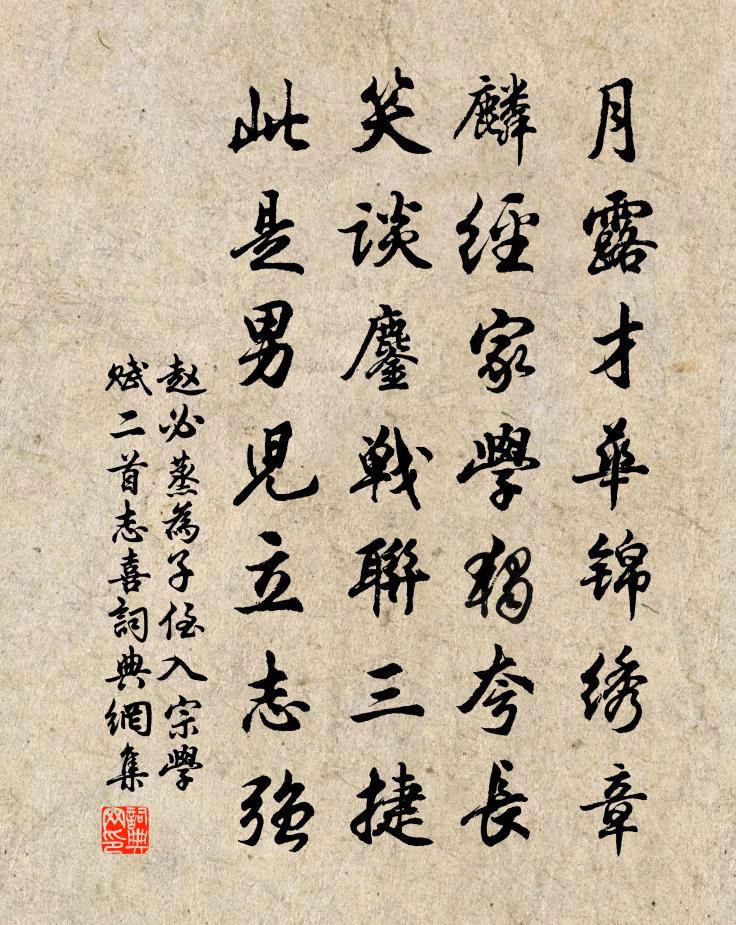 月露才華锦绣章
麟經家學獨夸長
笑談鏖戰聯三捷
此是男児立志强
赵必蒸為子侄入宗學
赋二首志喜詞典網集
詞典网印